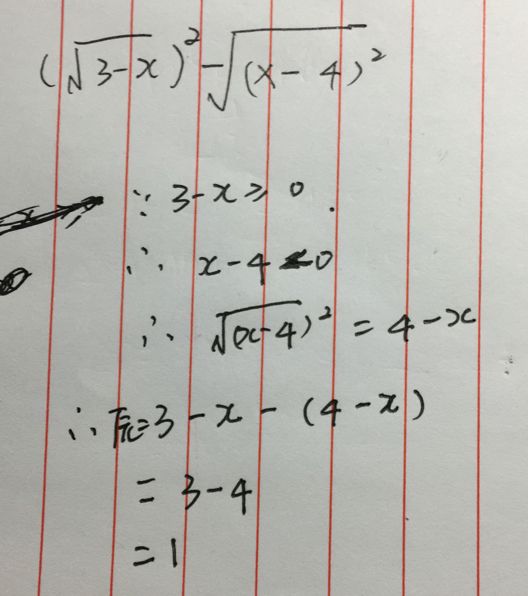 (√3-x)²-√(x-4)²
∵ 3-x≥0.
∴ x-4<0
∴ √(x-4)² = 4-x
∴ 原=3-x-(4-x)
= 3-4
= 1